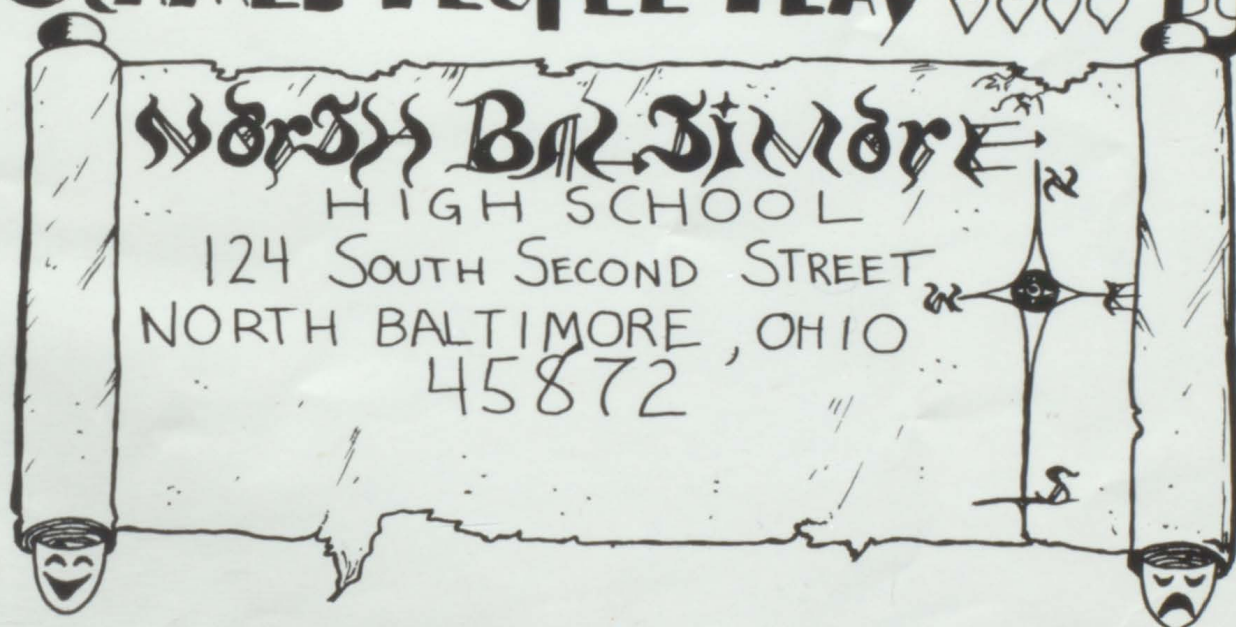 GAMES PEOPLE PLAY
NORTH BALTIMORE
HIGH SCHOOL
124 SOUTH SECOND STREET
NORTH BALTIMORE, OHIO
45872
N
W E
S